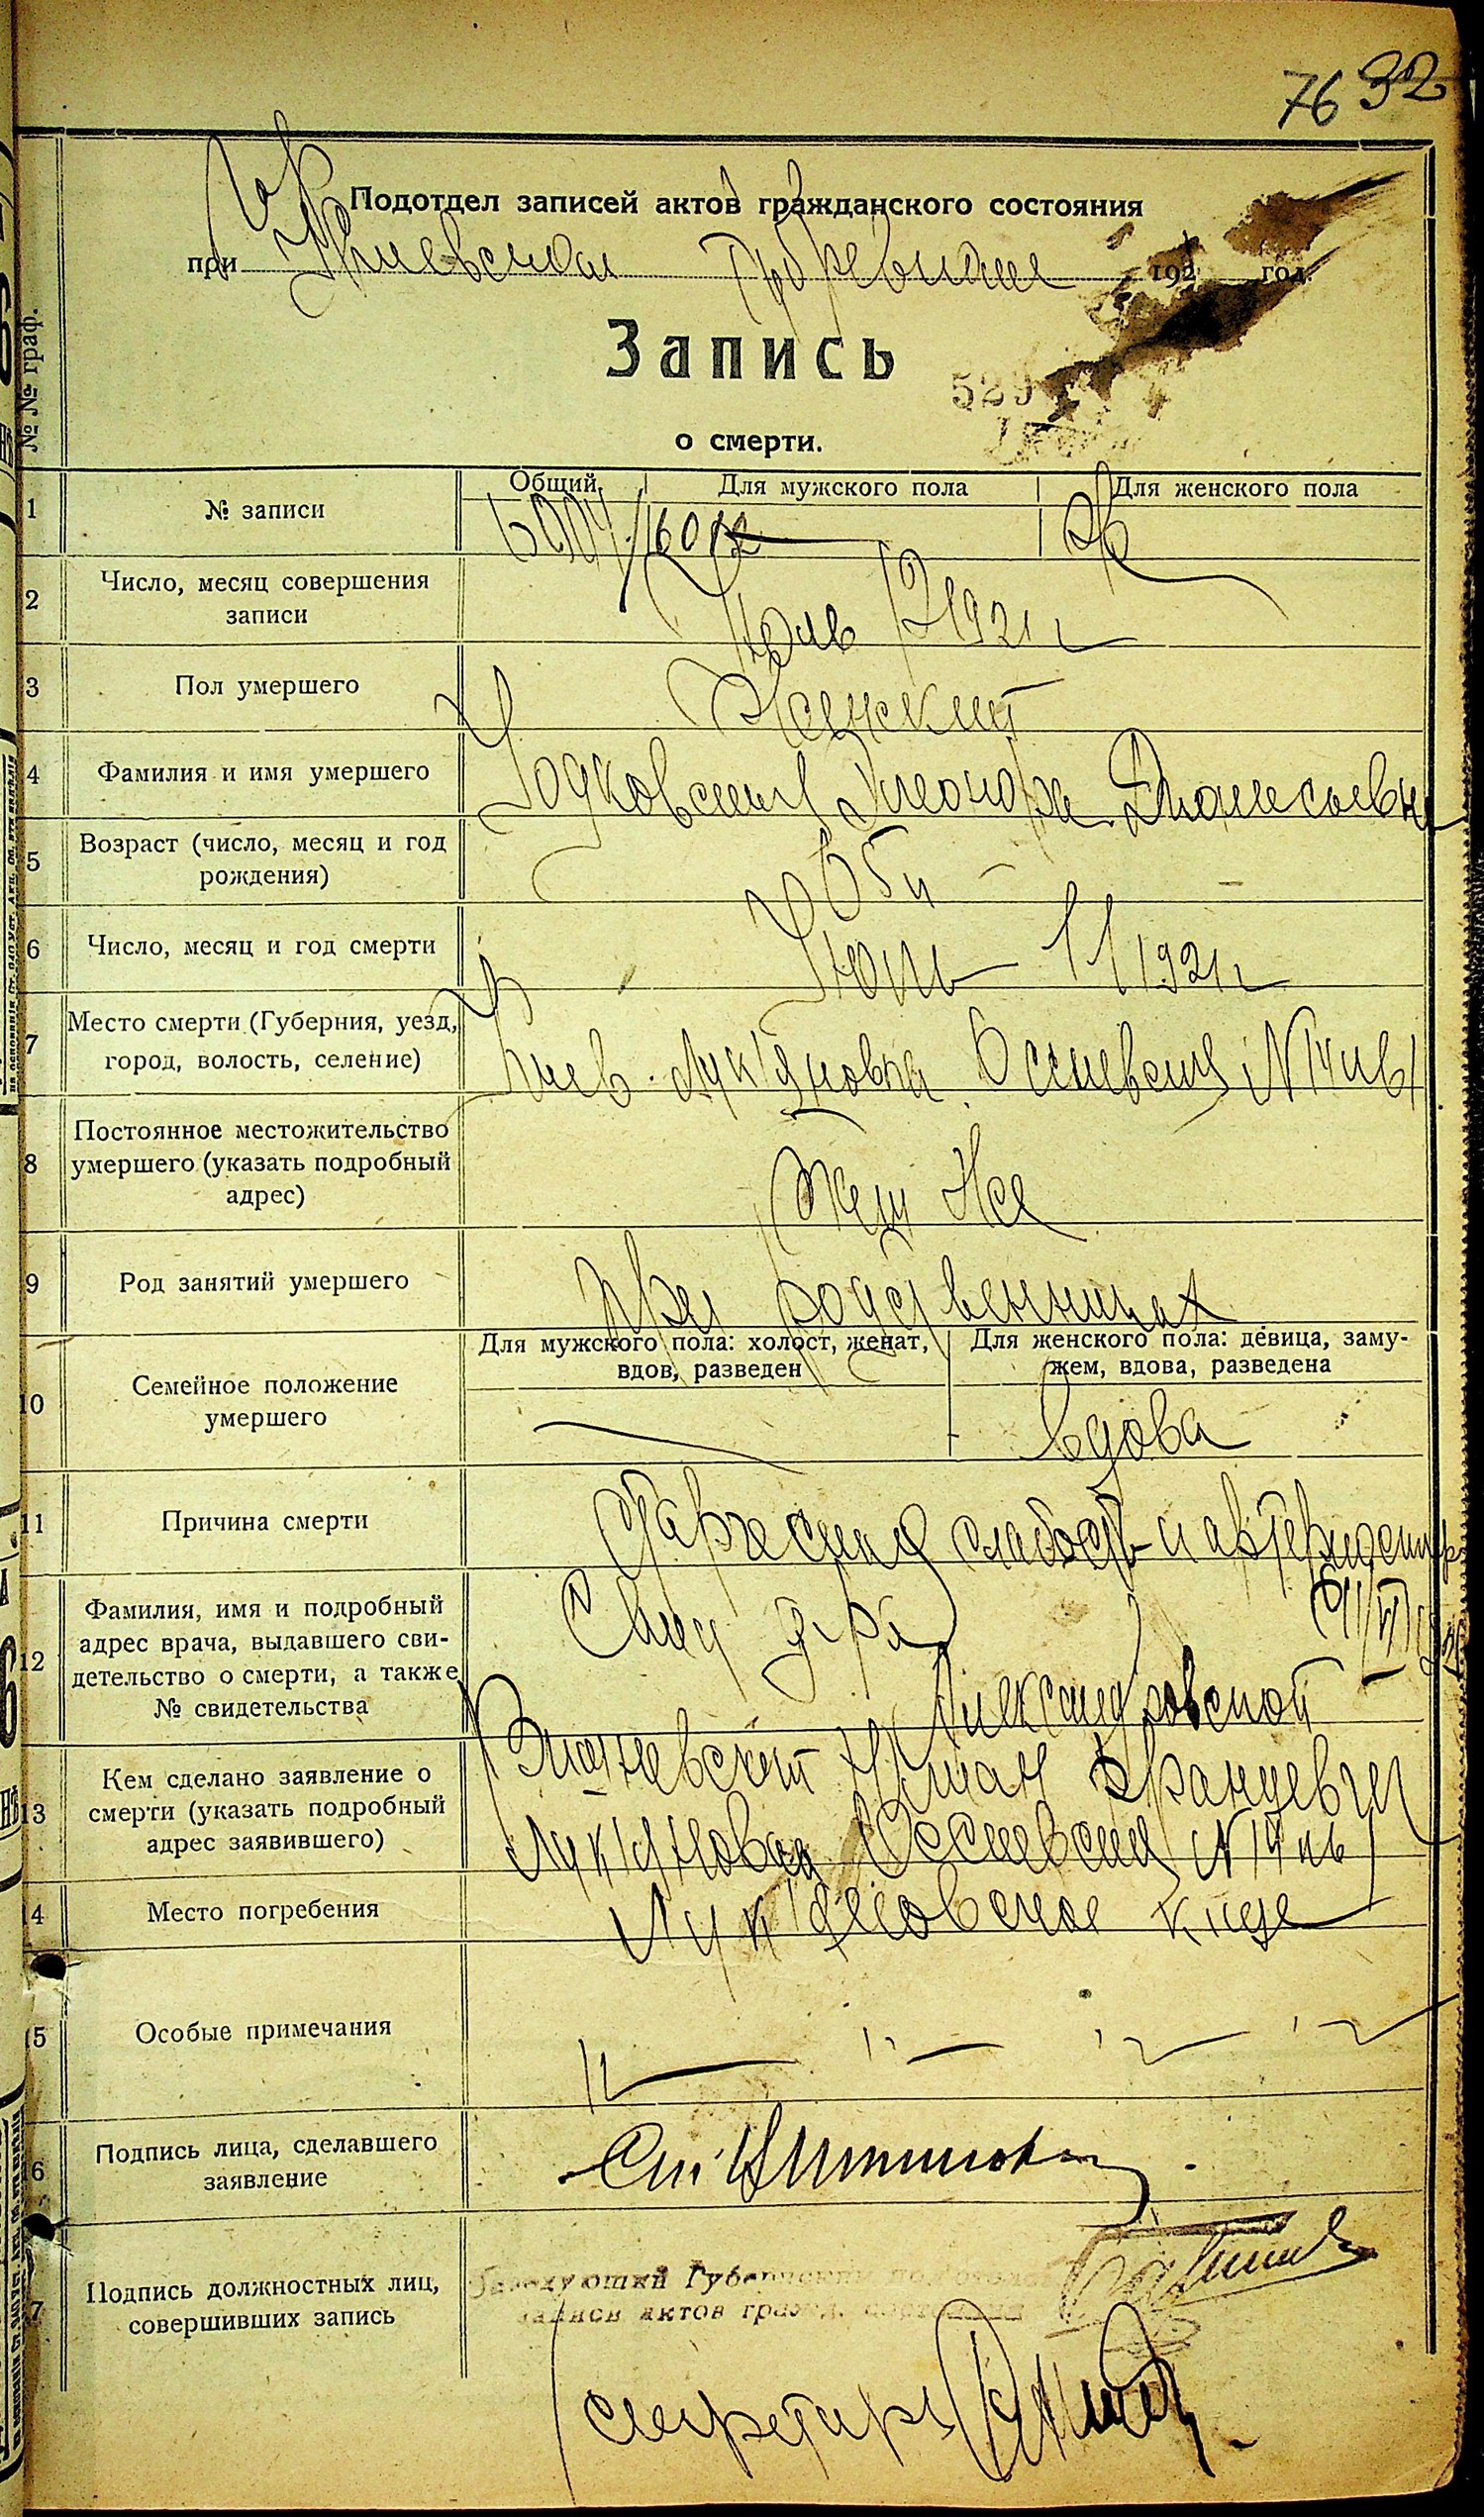 76 32
Подотдел записей актов гражданского состояния
при Киевском Губревкоме 1921 год.
Запись
о смерти.
№№ граф.
1 № записи
Общий. Для мужского пола Для женского пола
2 Число, месяц совершения записи
Июль 12 1921 г
3 Пол умершего
Женский
4 Фамилия и имя умершего
Ходковская Элеонора
5 Возраст (число, месяц и год рождения)
65 л
6 Число, месяц и год смерти
Июль 11 1921 г
7 Место смерти (Губерния, уезд, город, волость, селение)
Киев Лук'яновка Осиевская № 14 кв 1
8 Постоянное местожительство умершего (указать подробный адрес)
9 Род занятий умершего
при родственниках
10 Семейное положение умершего
Для мужского пола: холост, женат, вдов, разведен
Для женского пола: девица, замужем, вдова, разведена
вдова
11 Причина смерти
Старческая слабость и
12 Фамилия, имя и подробный адрес врача, выдавшего свидетельство о смерти, а также № свидетельства
д-ра
Александровской
13 Кем сделано заявление о смерти (указать подробный адрес заявившего)
Францевич
Лук'яновка Осиевская № 14 кв 1
14 Место погребения
Лук'яновское кище
15 Особые примечания
16 Подпись лица, сделавшего заявление
17 Подпись должностных лиц, совершивших запись
Заведующий Губернским подотделом
записи актов гражд. состояния
секретарь